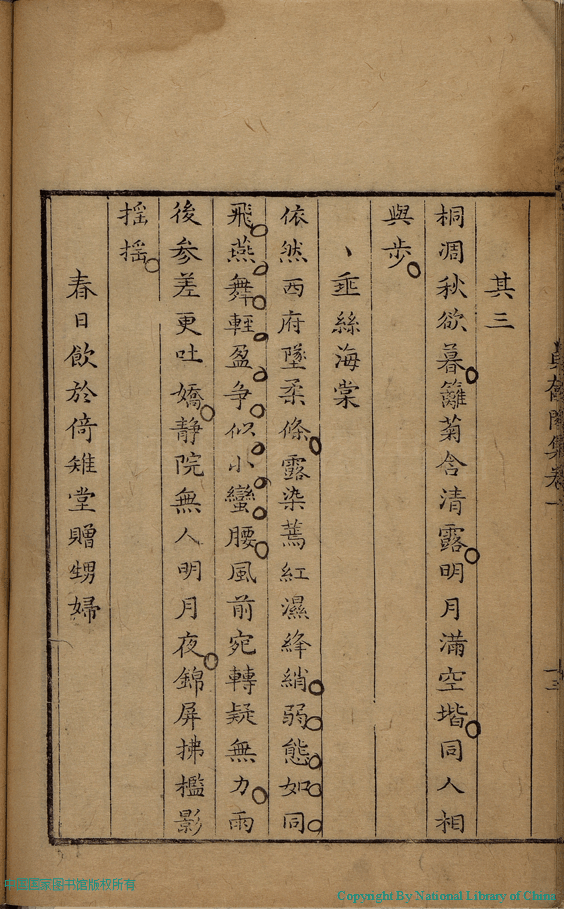 集卷一
十三
其三
桐凋秋欲暮籬菊含清露明月滿空堦同人相
與步
、垂絲海棠
依然西府墜柔條露染蔫紅濕絳綃弱態如同
飛燕舞輕盈争似小蠻腰風前宛轉疑無力雨
後參差更吐嬌静院無人明月夜錦屏拂檻影
揺揺
春日飲於倚雉堂贈甥婦
中国国家图书馆版权所有
Copyright By National Library of China